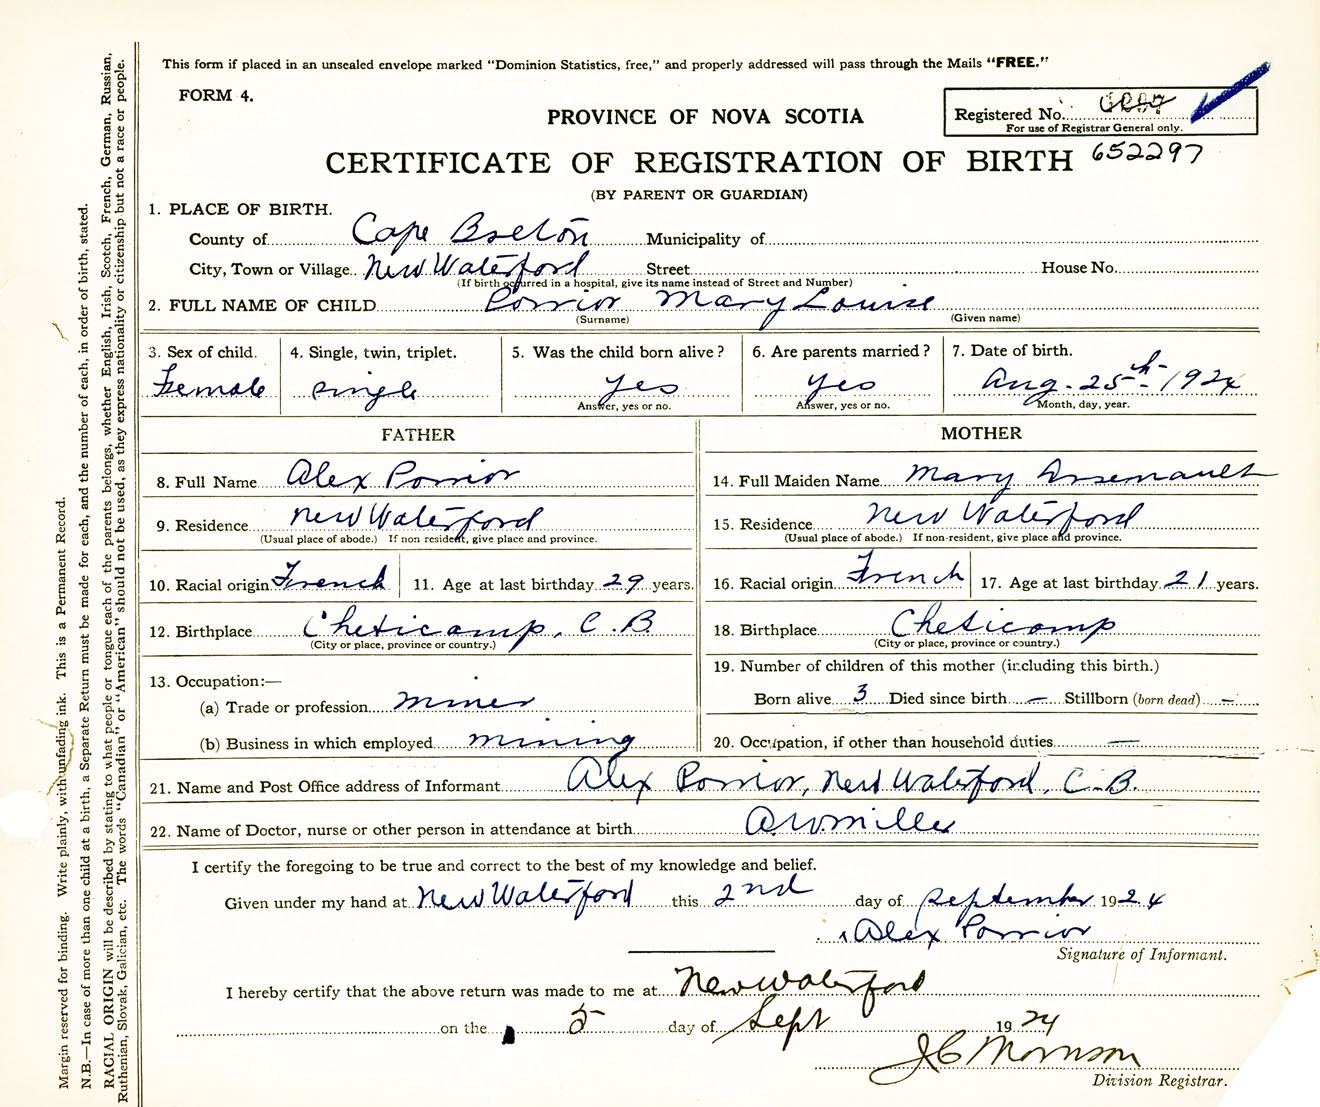 This form if placed in an unsealed envelope marked "Dominion Statistics, free," and properly addressed will pass through the Mails "FREE."
FORM 4.
PROVINCE OF NOVA SCOTIA
Registered No.
For use of Registrar General only.
CERTIFICATE OF REGISTRATION OF BIRTH 652297
(BY PARENT OR GUARDIAN)
1. PLACE OF BIRTH.
County of Cape Breton Municipality of
City, Town or Village New Waterford Street House No.
(If birth occurred in a hospital, give its name instead of Street and Number)
2. FULL NAME OF CHILD Porrior Mary Louise
(Surname) (Given name)
3. Sex of child. 4. Single, twin, triplet. 5. Was the child born alive? 6. Are parents married? 7. Date of birth.
Female single yes yes Aug. 25th 1924
Answer, yes or no. Answer, yes or no. Month, day, year.
FATHER MOTHER
8. Full Name Alex Porrior 14. Full Maiden Name Mary Arsenault
9. Residence New Waterford 15. Residence New Waterford
(Usual place of abode.) If non resident, give place and province. (Usual place of abode.) If non-resident, give place and province.
10. Racial origin French 11. Age at last birthday 29 years. 16. Racial origin French 17. Age at last birthday 21 years.
12. Birthplace Cheticamp, C.B. 18. Birthplace Cheticamp
(City or place, province or country.) (City or place, province or country.)
13. Occupation:— 19. Number of children of this mother (including this birth.)
(a) Trade or profession miner Born alive 3 Died since birth — Stillborn (born dead) —
(b) Business in which employed mining 20. Occupation, if other than household duties —
21. Name and Post Office address of Informant Alex Porrior, New Waterford, C.B.
22. Name of Doctor, nurse or other person in attendance at birth A.W. Miller
I certify the foregoing to be true and correct to the best of my knowledge and belief.
Given under my hand at New Waterford this 2nd day of September 1924
Alex Porrior
Signature of Informant.
I hereby certify that the above return was made to me at New Waterford
on the 5 day of Sept 1924
J C Morrison
Division Registrar.
Margin reserved for binding. Write plainly, with unfading ink. This is a Permanent Record.
N.B.—In case of more than one child at a birth, a Separate Return must be made for each, and the number of each, in order of birth, stated.
RACIAL ORIGIN will be described by stating to what people or tongue each of the parents belongs, whether English, Irish, Scotch, French, German, Russian,
Ruthenian, Slovak, Galician, etc. The words "Canadian" or "American" should not be used, as they express nationality or citizenship but not a race or people.